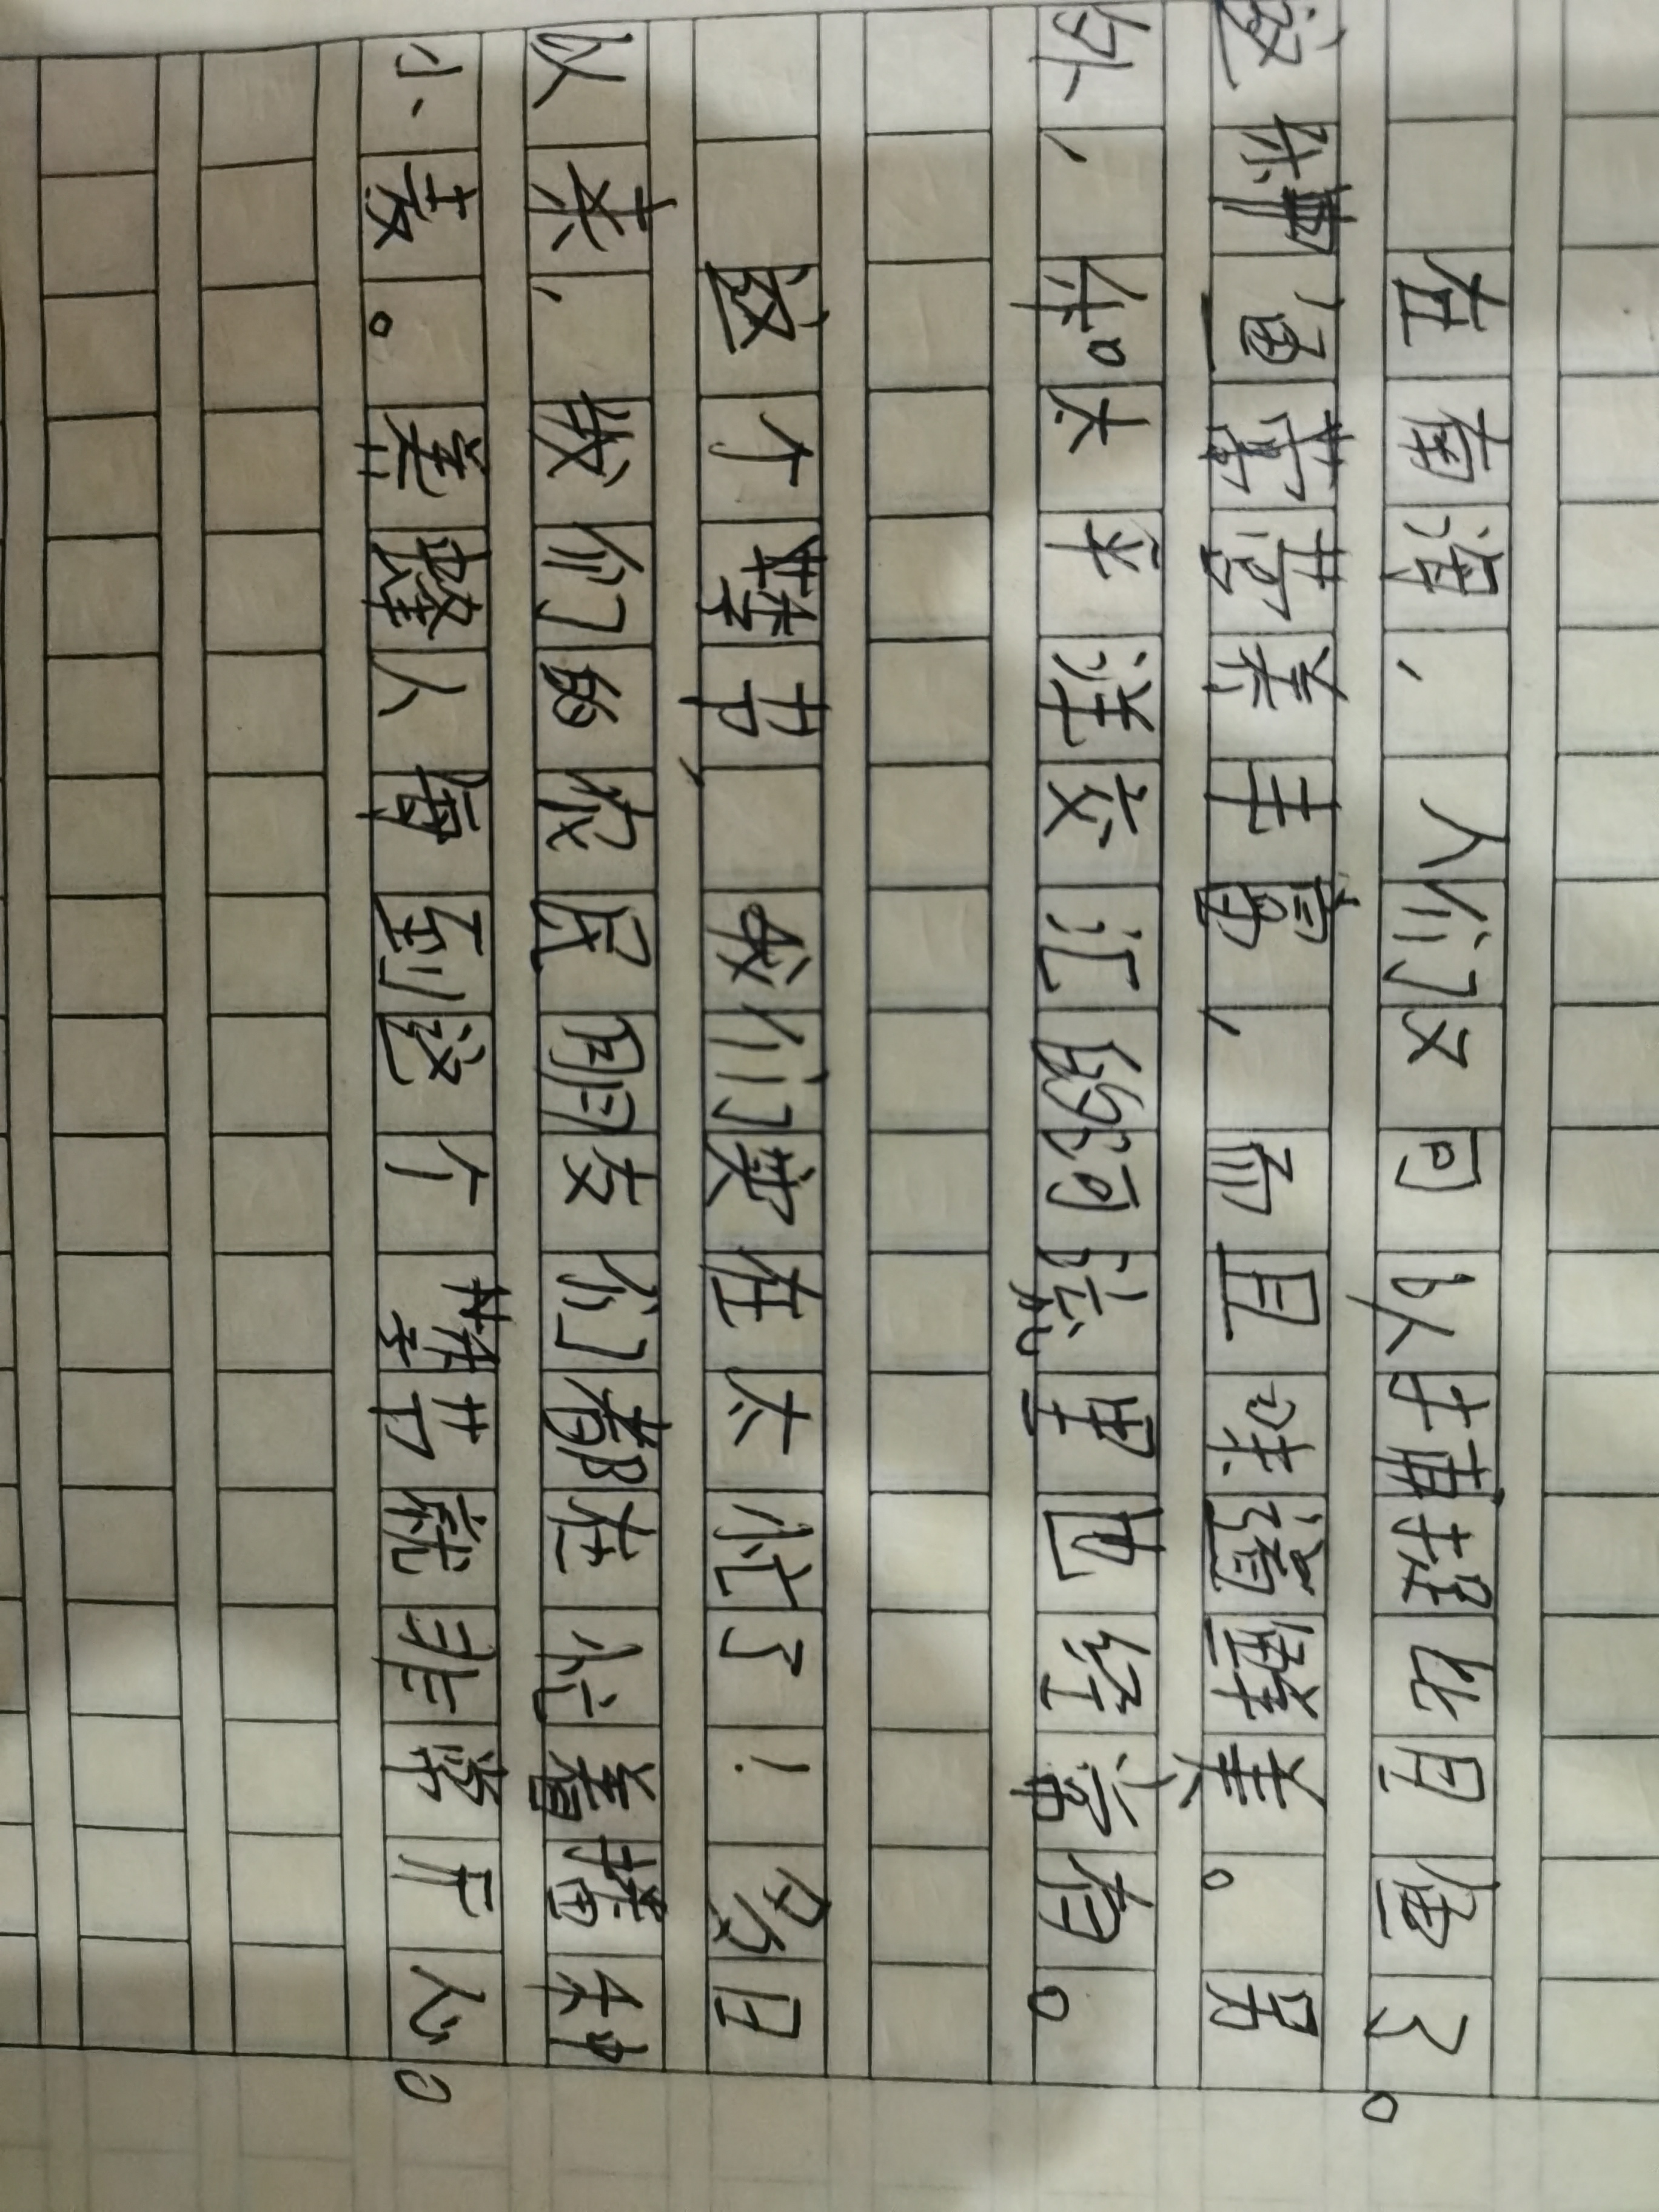 在南海，人们又可以捕捉比目鱼了。
这种鱼营养丰富，而且味道鲜美。另
外，和太平洋交汇的河流里也经常有。
这个季节，我们实在太忙了！多日
以来，我们的农民朋友们都在忙着播种
小麦。养蜂人每到这个季节就非常开心。